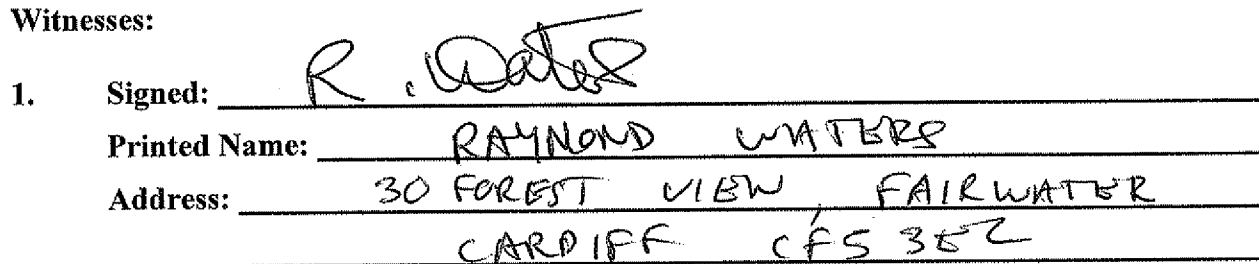 Witnesses:
1. Signed: R. Waters
Printed Name: RAYMOND WATERS
Address: 30 FOREST VIEW, FAIRWATER
CARDIFF CF5 3EZ